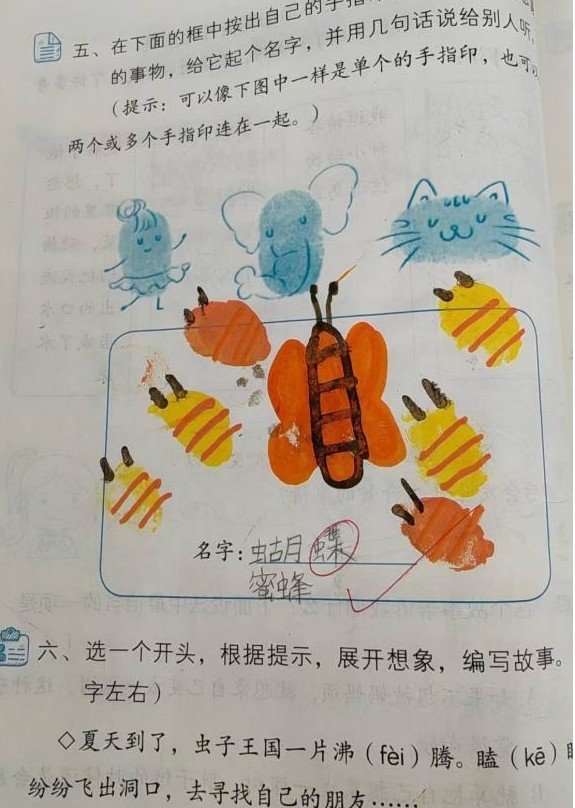 五、在下面的框中按出自己的手指
的事物，给它起个名字，并用几句话说给别人听。
（提示：可以像下图中一样是单个的手指印，也可以
两个或多个手指印连在一起。）
名字：蝴蝶
蜜蜂
六、选一个开头，根据提示，展开想象，编写故事。
字左右）
◇夏天到了，虫子王国一片沸（fèi）腾。瞌（kē）
纷纷飞出洞口，去寻找自己的朋友……